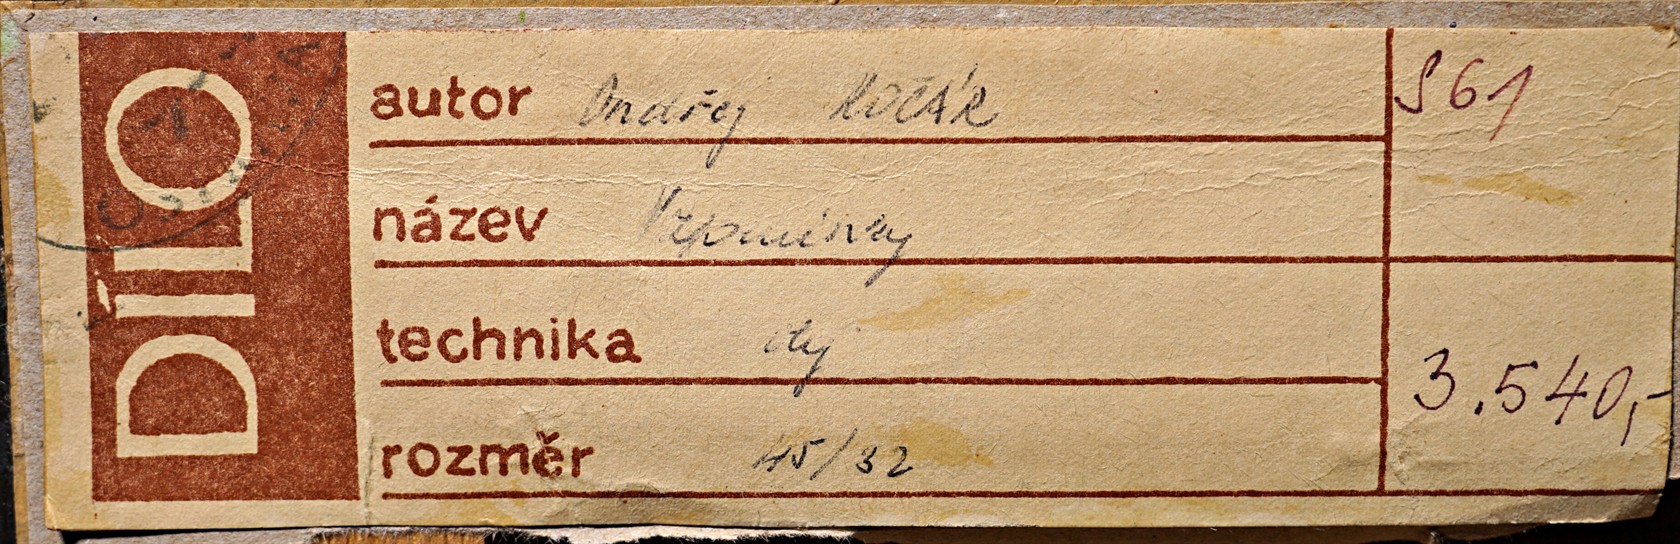 DÍLO
autor Ondřej KOČÁR
S61
název Vzpomínky
technika olej
3.540,-
rozměr 45/32